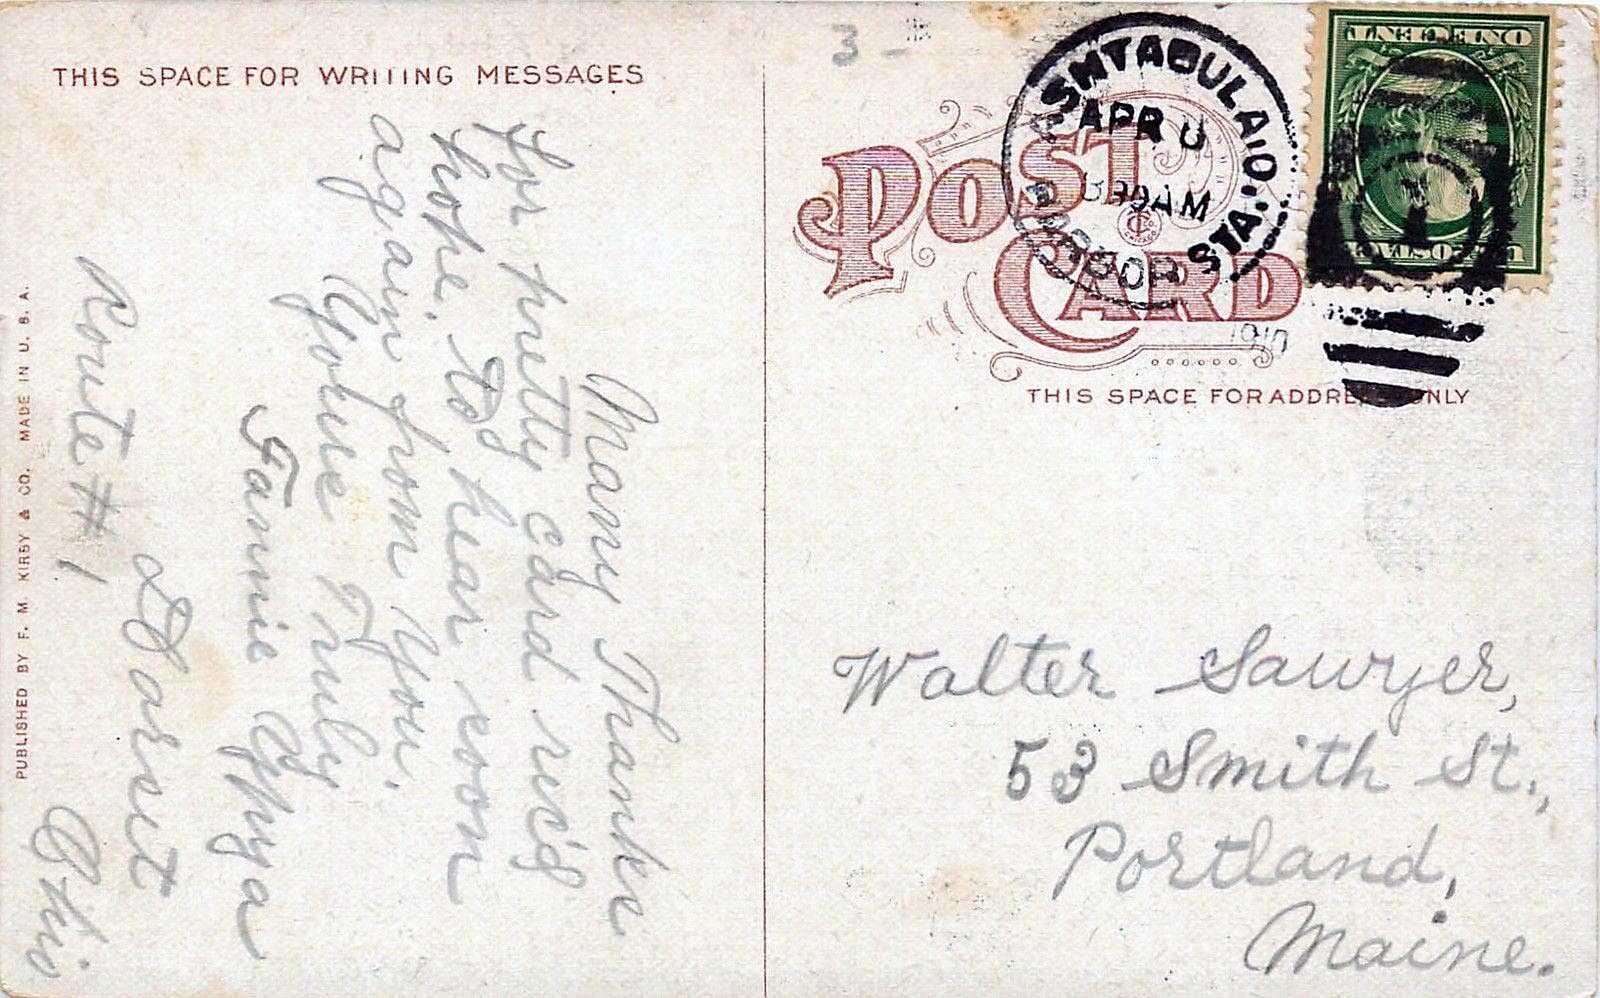 THIS SPACE FOR WRITING MESSAGES
Many Thanks
for pretty card rec'd
hope to hear soon
again from you.
Yours Truly
Fannie
Dorset
Route #1
Ohio
PUBLISHED BY F. M. KIRBY & CO. MADE IN U. S. A.
3 -
POST CARD
ASHTABULA, O.
APR
AM
HARBOR STA.
1910
ONE CENT
U.S. POSTAGE
THIS SPACE FOR ADDRESS ONLY
Walter Sawyer,
53 Smith St.,
Portland,
Maine.